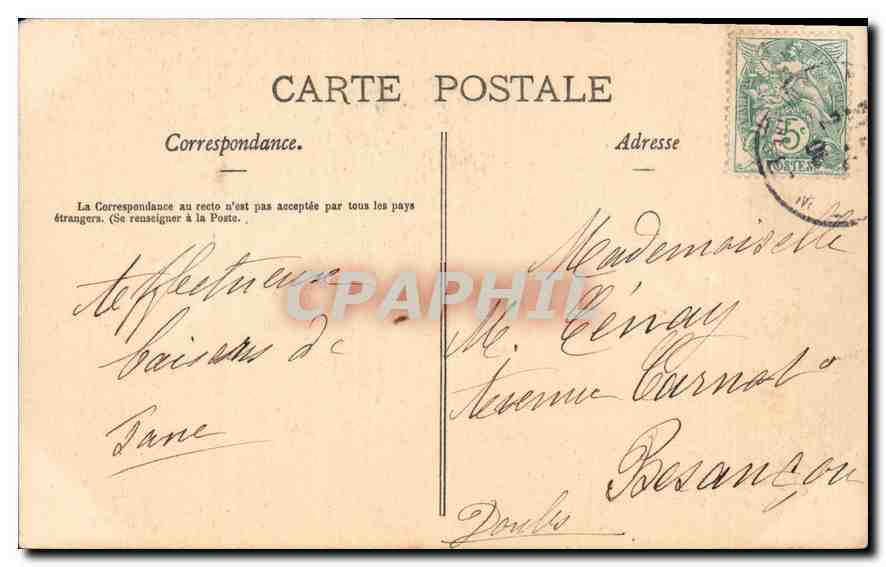 CARTE POSTALE
Correspondance.
Adresse
La Correspondance au recto n'est pas acceptée par tous les pays
étrangers. (Se renseigner à la Poste.
5c
POSTES
Affectueux
baisers de
Jane
Mademoiselle
M. Cénay
Avenue Carnot
Besançon
Doubs
CPAPHIL